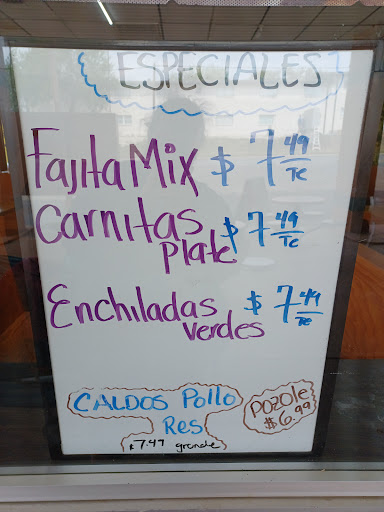 ESPECIALES
Fajita Mix $ 7 49/TC
Carnitas
Plate $ 7 49/TC
Enchiladas $ 7 49/TC
verdes
CALDOS Pollo
Res
$7.49 grande
Pozole
$6.99